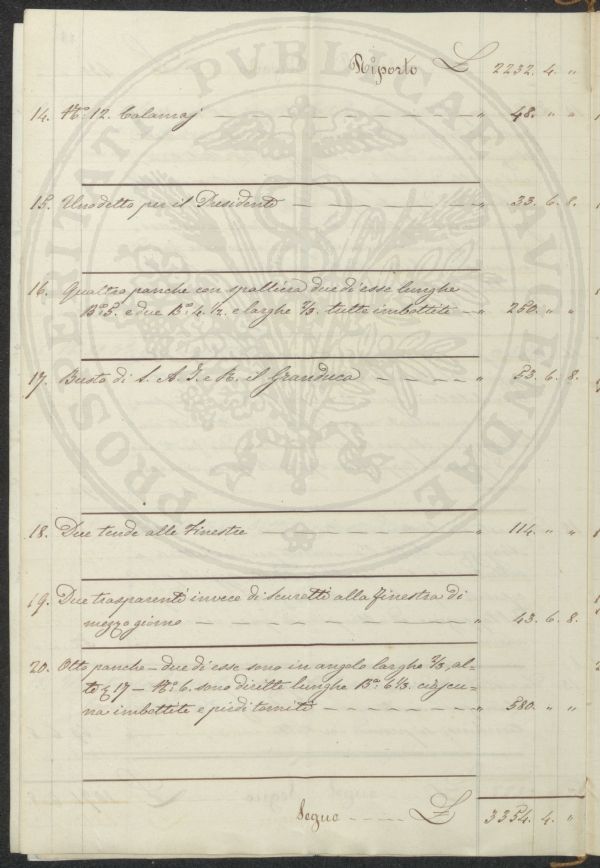 Riporto £ 2232. 4. "
14. N.º 12. Calamaj — " 48. " "
15. Uno detto per il Presidente — " 33. 6. 8.
16. Quattro panche con spalliera due d'esse lunghe
B.ª 5. e due B.ª 4. ½. e larghe ⅔. tutte imbottite — " 250. " "
17. Busto di S. A. I. e R. il Granduca — " 53. 6. 8.
18. Due tende alle Finestre — " 114. " "
19. Due trasparenti invece di scuretti alla finestra di
mezzogiorno — " 43. 6. 8.
20. Otto panche – due d'esse sono in angolo larghe ⅔, al-
te 17 – N.º 6. sono diritte lunghe B.ª 6 ⅓. ciascu-
na imbottite e piedi torniti — " 580. " "
Segue £ 3354. 4. "
PROSPERITATI PVBLICAE AVGENDAE